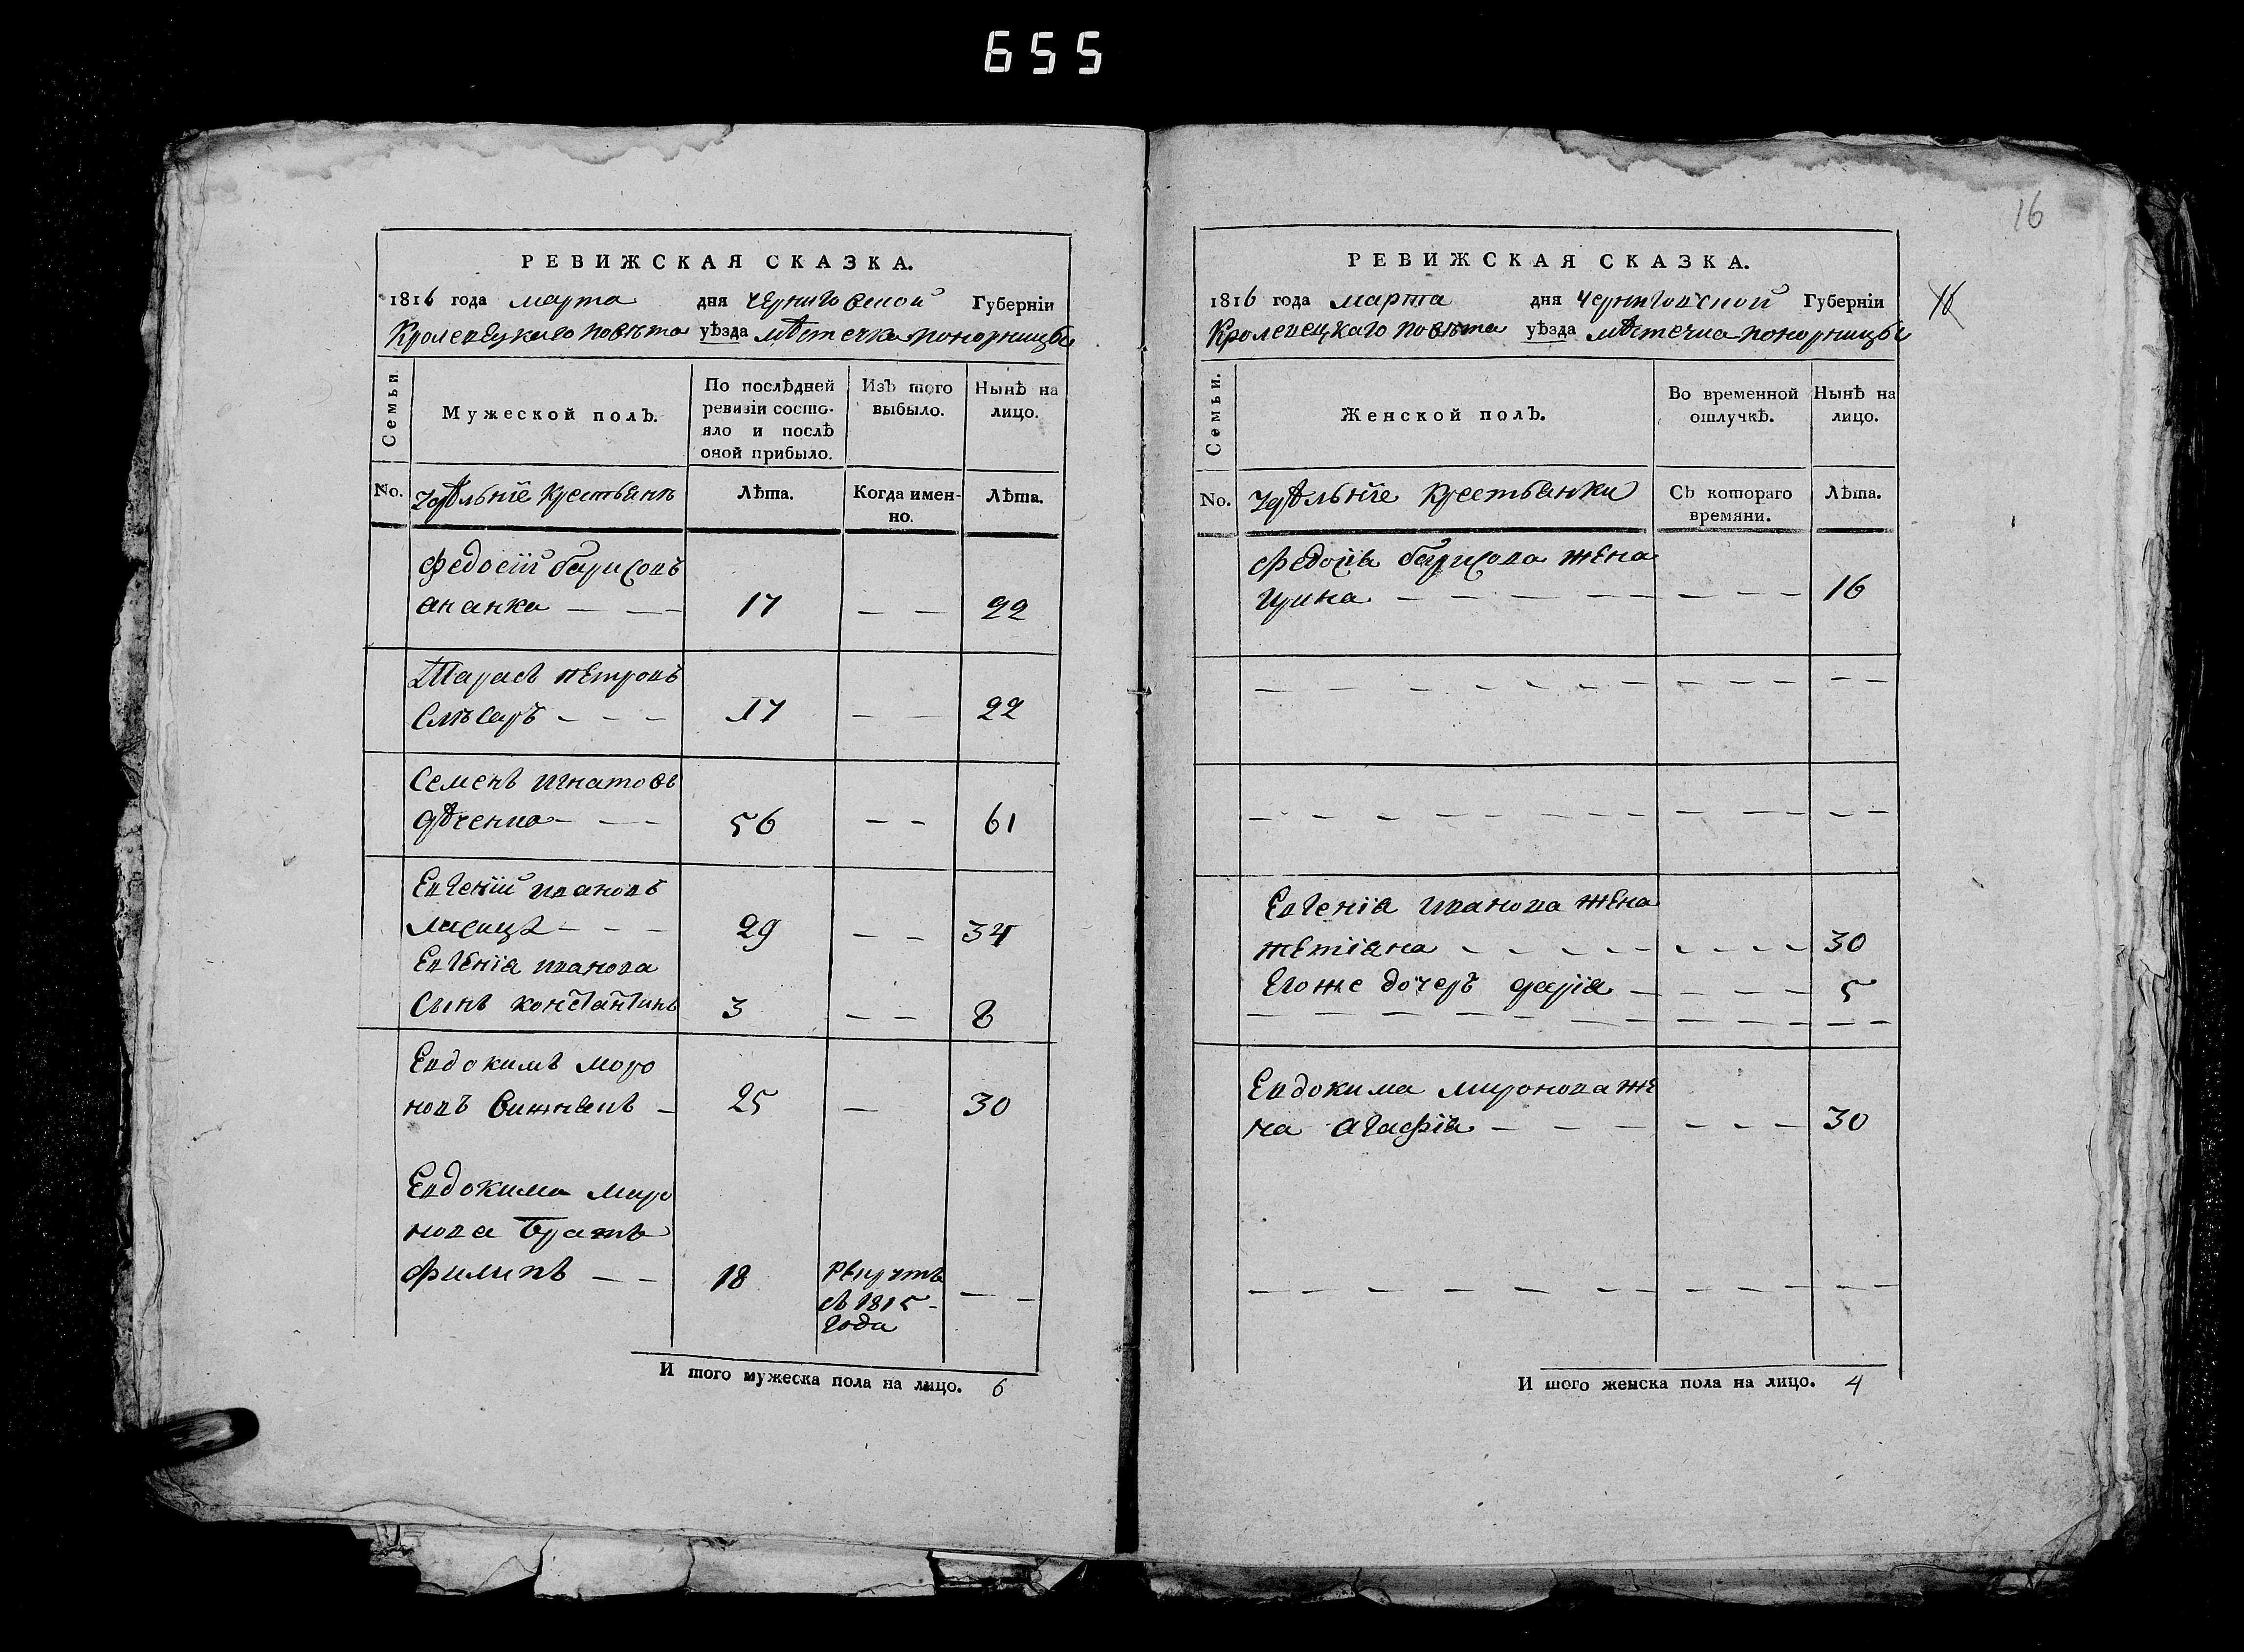 655
РЕВИЖСКАЯ СКАЗКА.
1816 года марта дня черниговской Губерніи
Кролевецкаго повѣта уѣзда мѣстечка понорницы
Семьи.
Мужеской полъ.
По послѣдней ревизіи состояло и послѣ оной прибыло.
Изъ того выбыло.
Нынѣ на лицо.
No.
Удѣльніе крестьянѣ
Лѣта.
Когда именно.
Лѣта.
Федосій борисовъ
ананка — — 17 — — 22
Тарасъ петровъ
Слѣсарь — — — 17 — — 22
Семенъ игнатовъ
дѣченко — — — 56 — — 61
Евгеній ивановъ
лисица — — — 29 — — 34
Евгенія иванова
Сынъ константинъ 3 — — 8
Евдокимъ миро
новъ вишнякъ — 25 — 30
Евдокима миро
нова братъ
филипъ — — 18 рекрутъ — —
съ 1815
года
И того мужеска пола на лицо. 6
16
16
РЕВИЖСКАЯ СКАЗКА.
1816 года марта дня черниговской Губерніи
Кролевецкаго повѣта уѣзда мѣстечка понорницы
Семьи.
Женской полъ.
Во временной отлучкѣ.
Нынѣ на лицо.
No.
Удѣльніе крестьянки
Съ котораго времяни.
Лѣта.
Федосія борисова жена
Ирина — — — — — — — — 16
Евгенія иванова жена
тетіана — — — — — — — — 30
Егоже дочеръ дарія — — — — 5
Евдокима миронова же
на агафія — — — — — — 30
И того женска пола на лицо. 4